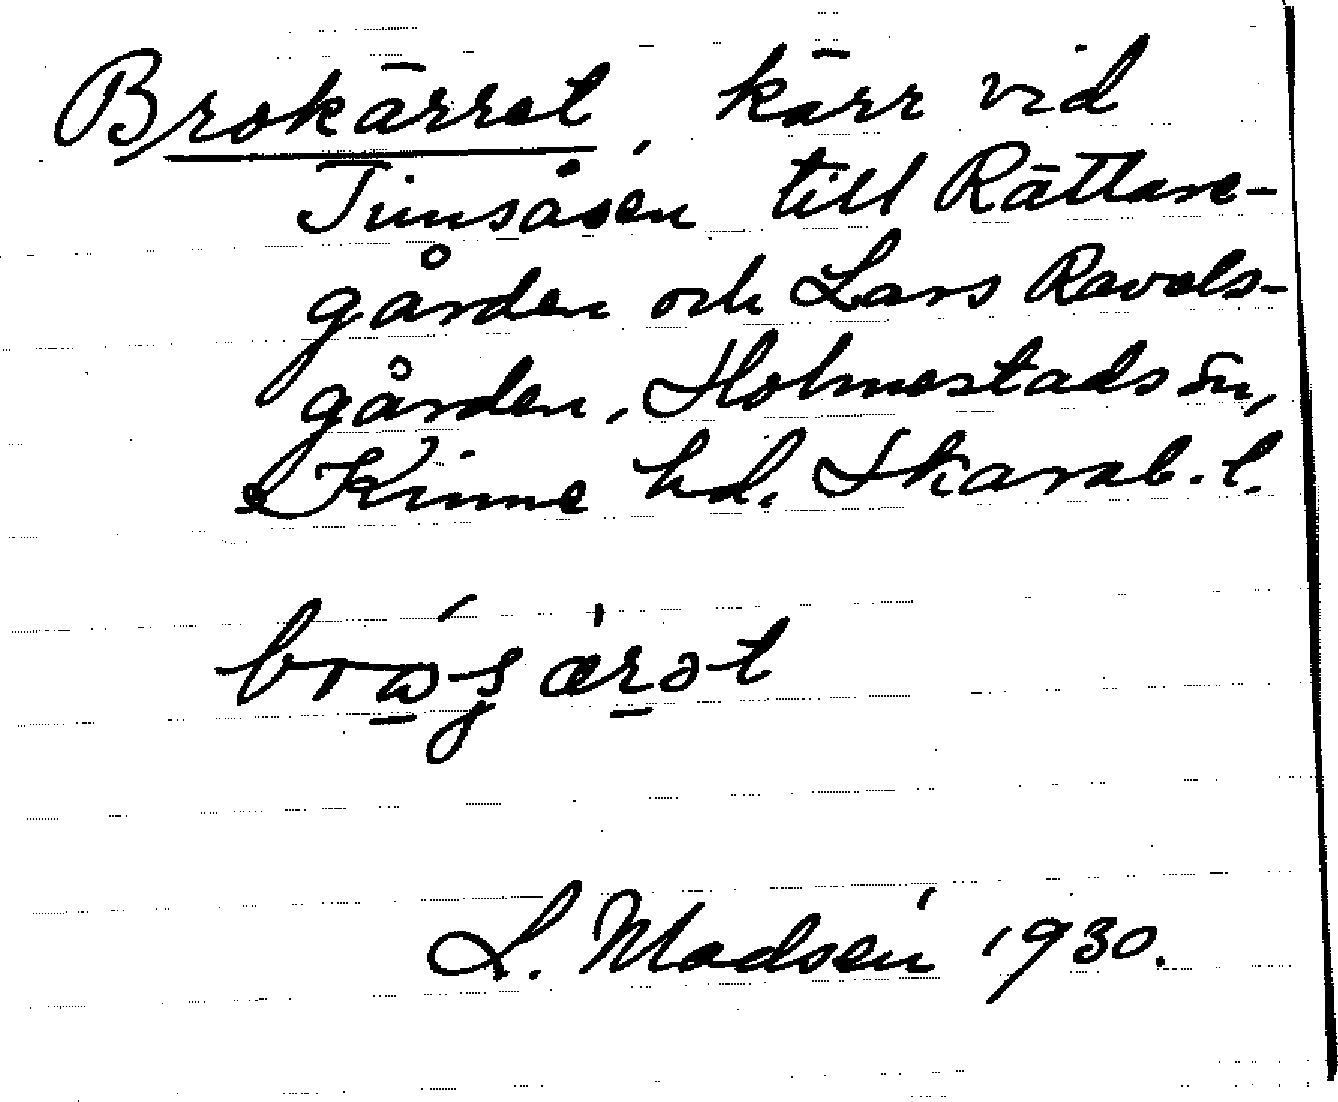 Brokärret, kärr vid
Timsåsen till Rättare-
gården och Lars Ravels-
gården, Holmestads sn,
Kinne hd. Skarab. l.
L. Madsén 1930.